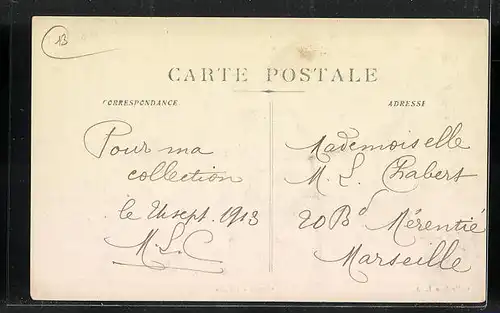 13
CARTE POSTALE
CORRESPONDANCE
ADRESSE
Pour ma
collection
le 24 sept. 1913
M.L.C
Mademoiselle
M. L. Chabert
20 Bd Mérentié
Marseille